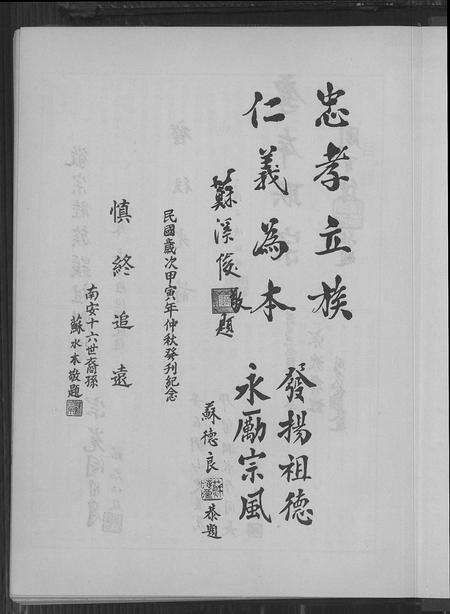 忠孝立族
仁義為本
蘇溪俊敬題
發揚祖德
永勵宗風
蘇德良恭題
民國歲次甲寅年仲秋發刊紀念
慎終追遠
南安十六世裔孫
蘇水木敬題